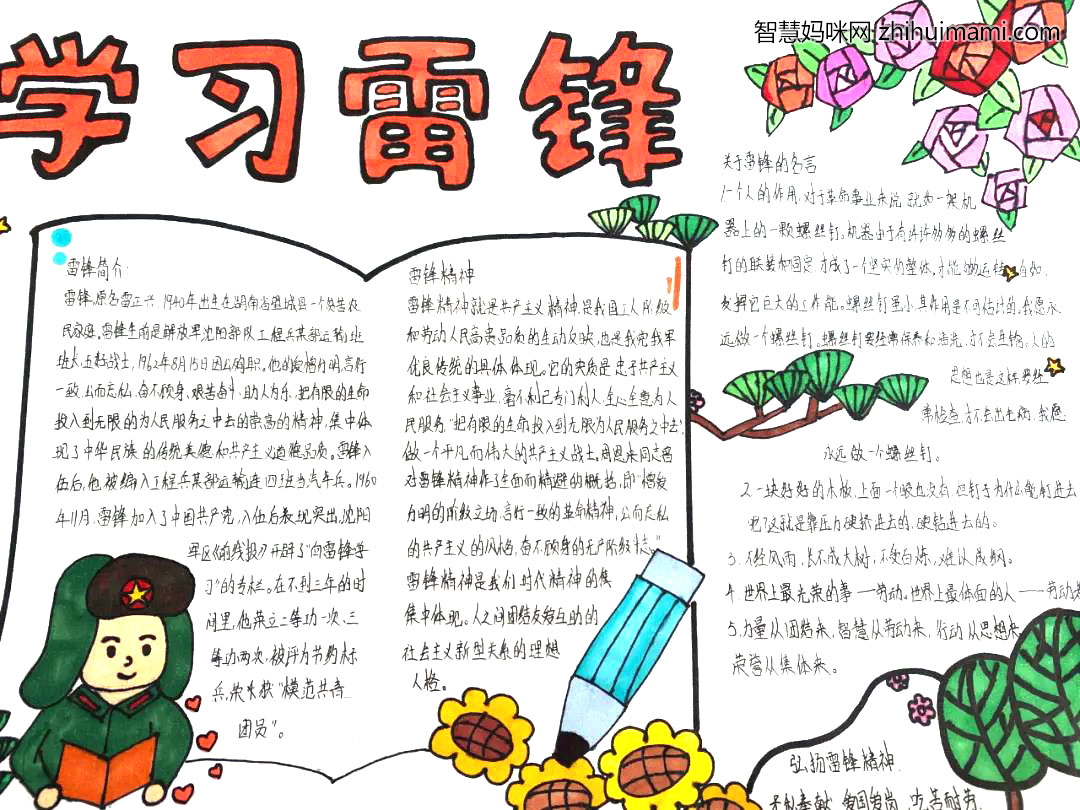 智慧妈咪网 zhihuimami.com
学习雷锋
雷锋简介:
雷锋,原名雷正兴,1940年出生在湖南省望城县一个贫苦农
民家庭。雷锋生前是解放军沈阳部队工程兵某部运输班
班长,五好战士,1962年8月15日因公殉职。他的爱憎分明,言行
一致,公而忘私,奋不顾身,艰苦奋斗,助人为乐,把有限的生命
投入到无限的为人民服务之中去的崇高的精神,集中体
现了中华民族的传统美德和共产主义道德品质。雷锋入
伍后,他被编入工程兵某部运输连四班当汽车兵。1960
年11月,雷锋加入了中国共产党,入伍后表现突出,沈阳
军区《前线报》开辟了"向雷锋学
习"的专栏。在不到三年的时
间里,他荣立二等功一次、三
等功两次,被评为节约标
兵,荣获"模范共青
团员"。
雷锋精神
雷锋精神就是共产主义精神,是我国工人阶级
和劳动人民高贵品质的生动反映,也是我党我军
优良传统的具体体现。它的实质是忠于共产主义
和社会主义事业,毫不利己专门利人,全心全意为人
民服务"把有限的生命投入到无限为人民服务之中去",
做一个平凡而伟大的共产主义战士。周恩来同志曾
对雷锋精神作了全面而精避的概括,即"憎爱
分明的阶级立场,言行一致的革命精神,公而忘私
的共产主义的风格,奋不顾身的无产阶级斗志。"
雷锋精神是我们时代精神的集
集中体现。人之间团结友爱互助的
社会主义新型关系的理想
人格。
关于雷锋的名言
1一个人的作用,对于革命事业来说,就如一架机
器上的一颗螺丝钉。机器由于有许许多多的螺丝
钉的联接和固定,才成了一个坚实的整体,才能够运转自如,
发挥它巨大的工作能。螺丝钉虽小,其作用是不可估计的。我愿永
远做一个螺丝钉。螺丝钉要经常保养和清洗,才不会生锈。人的
思想也是这样,要经
常检查,才不会出毛病。我愿
永远做一个螺丝钉。
2.一块好好的木板,上面一个眼也没有,但钉子为什么能钉进去
呢?这就是靠压力硬挤进去的,硬钻进去的。
3.不经风雨,长不成大树,不受白炼,难以成钢。
4.世界上最光荣的事——劳动。世界上最体面的人——劳动者
5.力量从团结来,智慧从劳动来,行动从思想来
荣誉从集体来。
弘扬雷锋精神
无私奉献 爱国爱岗 吃苦耐劳